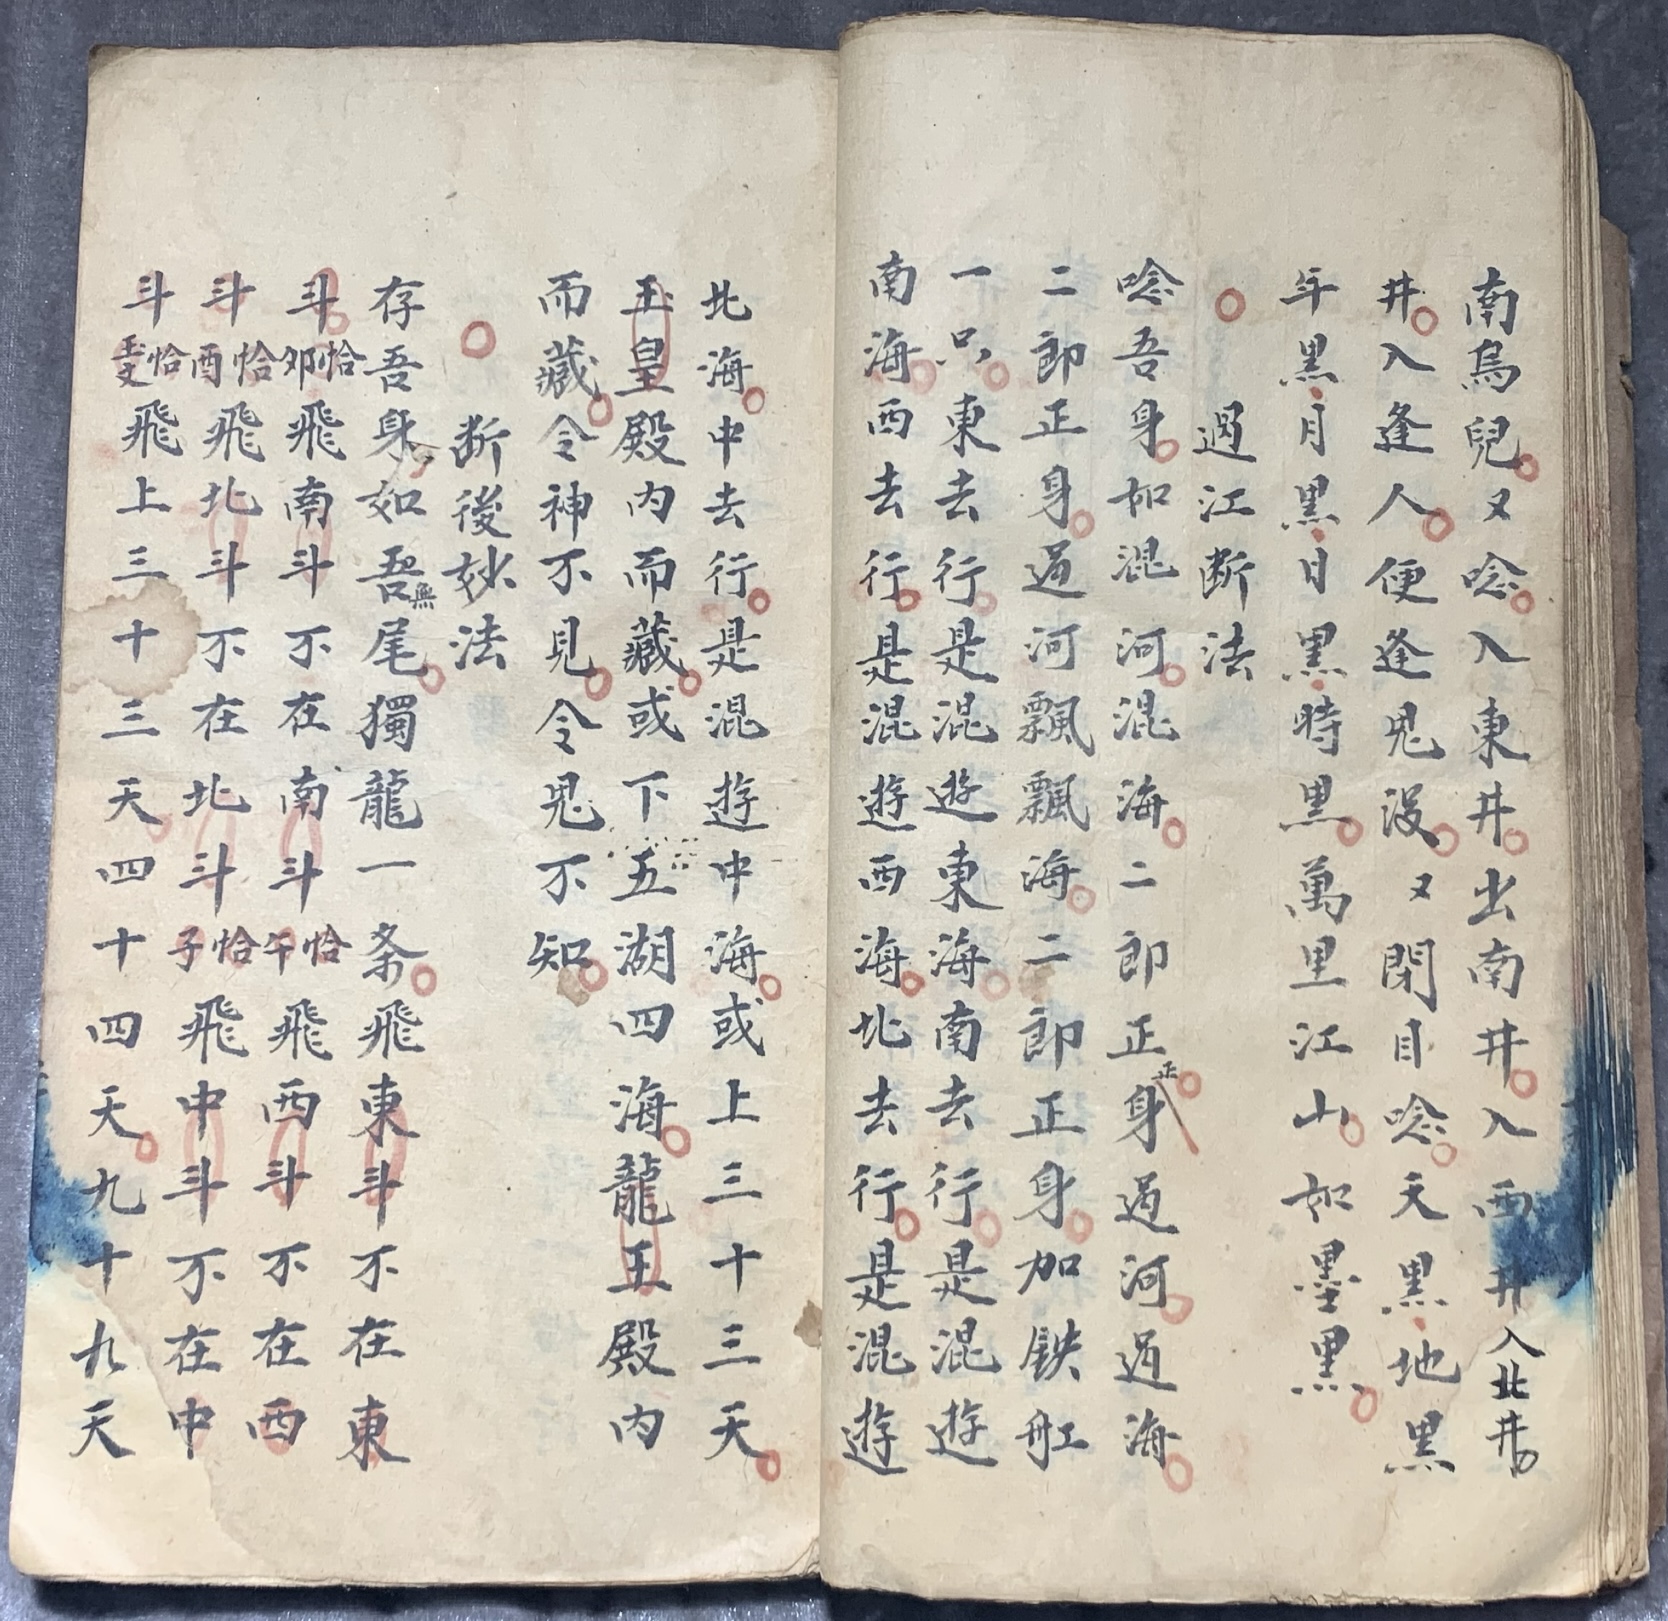 南烏兒又唸入東井出南井入西井入北井
井入逢人便逢鬼沒又閉目唸天黒地黒
年黒月黒日黒時黒萬里江山如墨黒
過江断法
唸吾身如混河混海二郎正身過河過海
正
二郎正身過河飄飄海二郎正身加鉄舡
一只東去行是混遊東海南去行是混遊
南海西去行是混遊西海北去行是混遊
北海中去行是混遊中海或上三十三天
玉皇殿内而藏或下五湖四海龍王殿内
而藏令神不見令鬼不知
断後妙法
存吾身如吾無尾獨龍一条飛東斗不在東
斗恰卯飛南斗不在南斗恰午飛西斗不在西
斗恰酉飛北斗不在北斗恰子飛中斗不在中
斗恰飛上三十三天四十四天九十九天